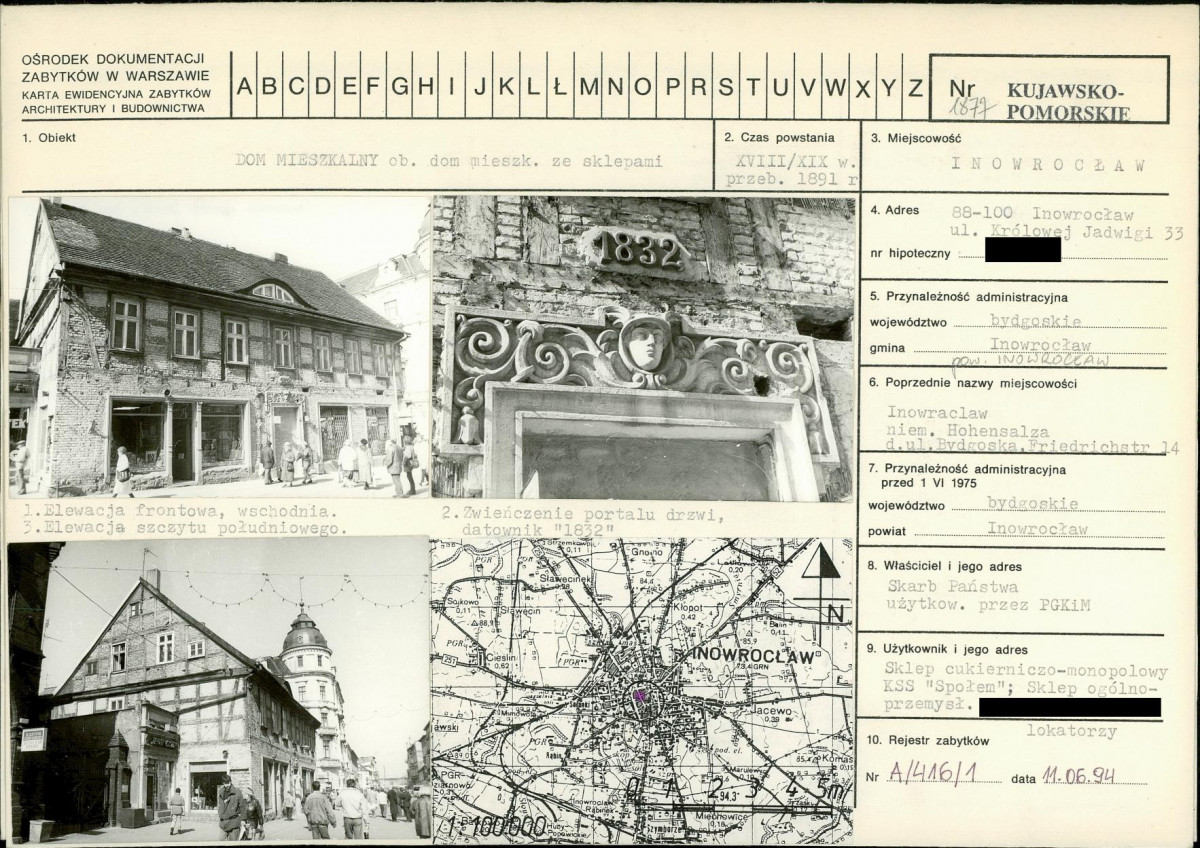 OŚRODEK DOKUMENTACJI
ZABYTKÓW W WARSZAWIE
KARTA EWIDENCYJNA ZABYTKÓW
ARCHITEKTURY I BUDOWNICTWA
A B C D E F G H I J K L Ł M N O P R S T U V W X Y Z
Nr
1877
KUJAWSKO-
POMORSKIE
1. Obiekt
DOM MIESZKALNY ob. dom mieszk. ze sklepami
2. Czas powstania
XVIII/XIX w.
przeb. 1891 r
3. Miejscowość
INOWROCŁAW
4. Adres
88-100 Inowrocław
ul. Królowej Jadwigi 33
nr hipoteczny
5. Przynależność administracyjna
województwo bydgoskie
gmina Inowrocław
pow. INOWROCŁAW
6. Poprzednie nazwy miejscowości
Inowraclaw
niem. Hohensalza
d.ul.Bydgoska,Friedrichstr 14
7. Przynależność administracyjna
przed 1 VI 1975
województwo bydgoskie
powiat Inowrocław
8. Właściciel i jego adres
Skarb Państwa
użytkow. przez PGKiM
9. Użytkownik i jego adres
Sklep cukierniczo-monopolowy
KSS "Społem"; Sklep ogólno-
przemysł.
lokatorzy
10. Rejestr zabytków
Nr A/416/1 data 11.06.94
1832
1.Elewacja frontowa, wschodnia.
3.Elewacja szczytu południowego.
2.Zwieńczenie portalu drzwi,
datownik "1832"
Gnojno
Sławęcinek
Sławęcin
Kłopot
0,42
Cieślin
0,62
251
PGR
INOWROCŁAW
Jacewo
0,39
Miechowice
0,18
Szymborze
N
0 1 2 3 4 5
94,3
1:100000